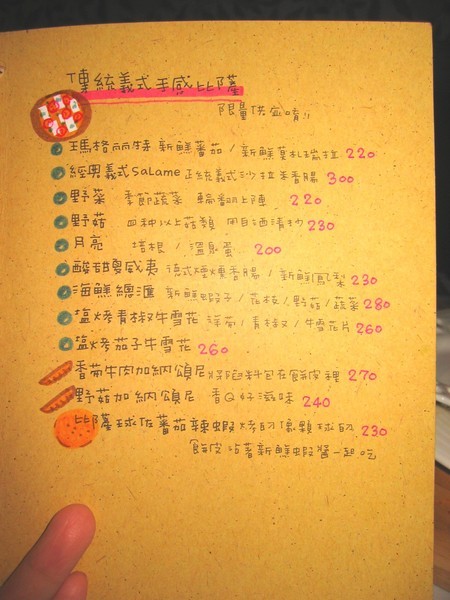 傳統義式手感比薩
限量供應唷!!
瑪格麗特 新鮮蕃茄/新鮮莫札瑞拉 220
經典義式Salame 正統義式沙拉米香腸 300
野菜 季節蔬菜 輪翻上陣 220
野菇 四種以上菇類 用白酒清炒 230
月亮 培根/溫泉蛋 200
酸甜夏威夷 德式煙燻香腸/新鮮鳳梨 230
海鮮總匯 新鮮蝦子/花枝/野菇/蔬菜 280
塩烤青椒牛雪花 洋蔥/青椒/牛雪花片 260
塩烤茄子牛雪花 260
香蔥牛肉加納頌尼 將餡料包在餅皮裡 270
野菇加納頌尼 香Q好滋味 240
比薩球佐蕃茄辣蝦 烤的像顆球的 230
餅皮 沾著新鮮蝦醬一起吃